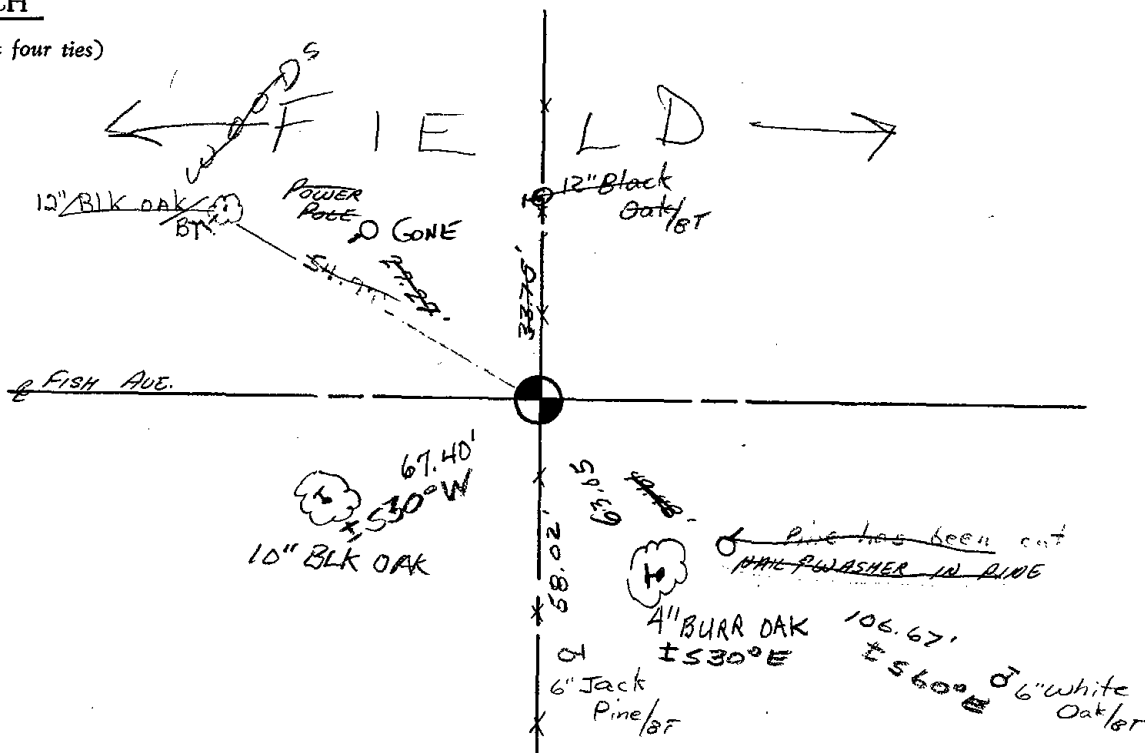 CH
four ties)
WOODS
FIELD
12" BLK OAK/
BT
POWER
POLE
GONE
12" Black
Oak/BT
33.75'
FISH AVE.
67.40'
± S30°W
10" BLK OAK
63.65
58.02'
Pine has been cut
NAIL & WASHER IN PINE
4" BURR OAK
± S30°E
106.67'
± S60°E
6" White
Oak/BT
6" Jack
Pine/BT